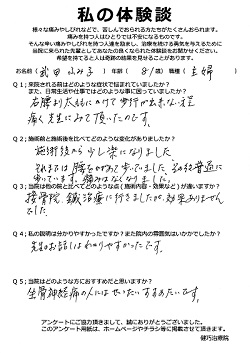 私の体験談
様々な痛みやしびれなどで、苦しんでおられる方たちがたくさんおられます。
痛みを持つ人はひとりでは不安になるものです。
そんな辛い痛みやしびれを持つ人達を励まし、治療を続ける勇気を与えるために
当院に来られた先輩としてあなたの良くなられた体験談をお聞かせください。
希望を持てると人は奇跡的結果を見せることがあります。
お名前（武田 ふみ子）年齢（81）歳 職種（主婦）
Q1；来院される前はどのような症状で悩まれていましたか？
また、日常生活や仕事上でどのような事に困っていましたか？
右腰より太ももにかけて歩行が出来ない程
痛く先生にみて頂いたのです。
Q2；施術前と施術後を比べてどのような変化がありましたか？
施術後から少し楽になりました
普通に
痛みはなくなりました。
Q3；当院は他の院と比べてどのような点（施術内容・効果など）が違いますか？
接骨院、鍼治療に行きましたが、効果ありません
でした。
Q4；私の説明は分かりやすかったですか？また院内の雰囲気はいかかでしたか？
先生のお話しはわかりやすかったです。
Q5；当院はどのような方におすすめだと思いますか？
坐骨神経痛の人にはぜひたいすすめたいです。
アンケートにご協力頂きまして、誠にありがとうございました。
このアンケート用紙は、ホームページやチラシ等に掲載させて頂きます。
健巧治療院